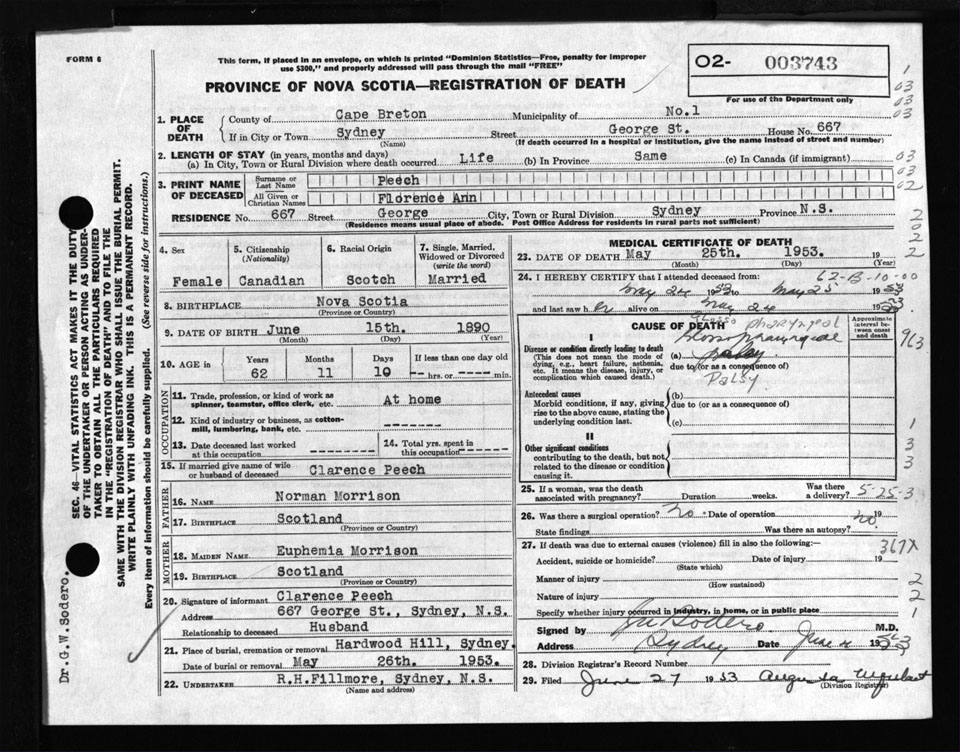 FORM 6
This form, if placed in an envelope, on which is printed "Dominion Statistics—Free, penalty for improper
use $300," and properly addressed will pass through the mail "FREE"
02- 003743
For use of the Department only
PROVINCE OF NOVA SCOTIA—REGISTRATION OF DEATH
1. PLACE OF DEATH
County of Cape Breton Municipality of No.1
If in City or Town Sydney Street George St. House No. 667
(Name) (If death occurred in a hospital or institution, give the name instead of street and number)
2. LENGTH OF STAY (in years, months and days)
(a) In City, Town or Rural Division where death occurred Life (b) In Province Same (c) In Canada (if immigrant)
3. PRINT NAME OF DECEASED
Surname or Last Name Peech
All Given or Christian Names Florence Ann
RESIDENCE No. 667 Street George City, Town or Rural Division Sydney Province N.S.
(Residence means usual place of abode. Post Office Address for residents in rural parts not sufficient)
4. Sex
Female
5. Citizenship
(Nationality)
Canadian
6. Racial Origin
Scotch
7. Single, Married, Widowed or Divorced
(write the word)
Married
8. BIRTHPLACE Nova Scotia
(Province or Country)
9. DATE OF BIRTH June 15th. 1890
(Month) (Day) (Year)
10. AGE in
Years Months Days If less than one day old
62 11 10 -- hrs. or -- min.
OCCUPATION
11. Trade, profession, or kind of work as
spinner, teamster, office clerk, etc. At home
12. Kind of industry or business, as cotton-
mill, lumbering, bank, etc. -------
13. Date deceased last worked
at this occupation -------
14. Total yrs. spent in
this occupation -------
15. If married give name of wife
or husband of deceased Clarence Peech
FATHER
16. NAME Norman Morrison
17. BIRTHPLACE Scotland
(Province or Country)
MOTHER
18. MAIDEN NAME Euphemia Morrison
19. BIRTHPLACE Scotland
(Province or Country)
20. Signature of informant Clarence Peech
Address 667 George St., Sydney, N.S.
Relationship to deceased Husband
21. Place of burial, cremation or removal Hardwood Hill, Sydney.
Date of burial or removal May 26th. 1953.
22. UNDERTAKER R.H.Fillmore, Sydney, N.S.
(Name and address)
MEDICAL CERTIFICATE OF DEATH
23. DATE OF DEATH May 25th. 1953. 19
(Month) (Day) (Year)
24. I HEREBY CERTIFY that I attended deceased from: 62-B-10-00
May 24 1953 to May 25 1953
and last saw h er alive on May 24 1953
CAUSE OF DEATH
Approximate interval between onset and death
I
Disease or condition directly leading to death
(This does not mean the mode of
dying, e.g., heart failure, asthenia,
etc. It means the disease, injury, or
complication which caused death.)
Glosso pharyngeal
(a)
due to (or as a consequence of)
Palsy
Antecedent causes
Morbid conditions, if any, giving
rise to the above cause, stating the
underlying condition last.
(b)
due to (or as a consequence of)
(c)
II
Other significant conditions
contributing to the death, but not
related to the disease or condition
causing it.
25. If a woman, was the death
associated with pregnancy? Duration weeks. Was there a delivery? 5-25-3
26. Was there a surgical operation? No Date of operation 19
State findings Was there an autopsy? no.
27. If death was due to external causes (violence) fill in also the following:—
Accident, suicide or homicide? Date of injury 19
(State which)
Manner of injury
(How sustained)
Nature of injury
Specify whether injury occurred in industry, in home, or in public place
Signed by Sodero M.D.
Address Sydney Date June
28. Division Registrar's Record Number
29. Filed June 27 1953 Augusta Urquhart
(Division Registrar)
1
03
03
03
03
03
02
2
02
2
2
963
1
3
3
367X
2
2
1
SEC. 46—VITAL STATISTICS ACT MAKES IT THE DUTY
OF THE UNDERTAKER OR PERSON ACTING AS UNDER-
TAKER TO OBTAIN ALL THE PARTICULARS REQUIRED
IN THE "REGISTRATION OF DEATH" AND TO FILE THE
SAME WITH THE DIVISION REGISTRAR WHO SHALL ISSUE THE BURIAL PERMIT.
WRITE PLAINLY WITH UNFADING INK. THIS IS A PERMANENT RECORD.
Every item of information should be carefully supplied. (See reverse side for instructions.)
Dr.G.W.Sodero.